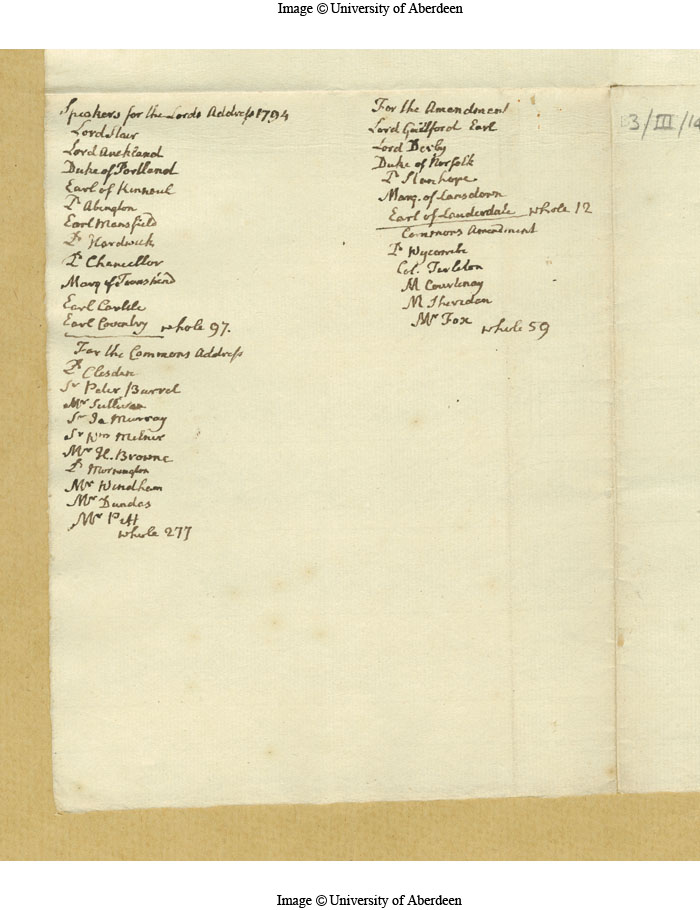 Image © University of Aberdeen
Speakers for the Lords Address 1794
Lord Stair
Lord Auckland
Duke of Portland
Earl of Kinnoul
Ld Abington
Earl Mansfield
Ld Hardwick
Ld Chancellor
Marq of Townshend
Earl Carlile
Earl Coventry whole 97.
For the Commons Address
Ld Clesden
Sr Peter Burrel
Mr Sullivan
Sr Ja Murray
Sr Wm Milner
Mr H. Browne
Ld Mornington
Mr Windham
Mr Dundas
Mr Pitt
whole 277
For the Amendment
Lord Guilford Earl
Lord Derby
Duke of Norfolk
Ld Stanhope
Marq. of Lansdown
Earl of Lauderdale whole 12
Commons Amendment
Ld Wycombe
Col. Tarleton
M Courtenay
M Sheridan
Mr Fox
whole 59
3/III/14
Image © University of Aberdeen